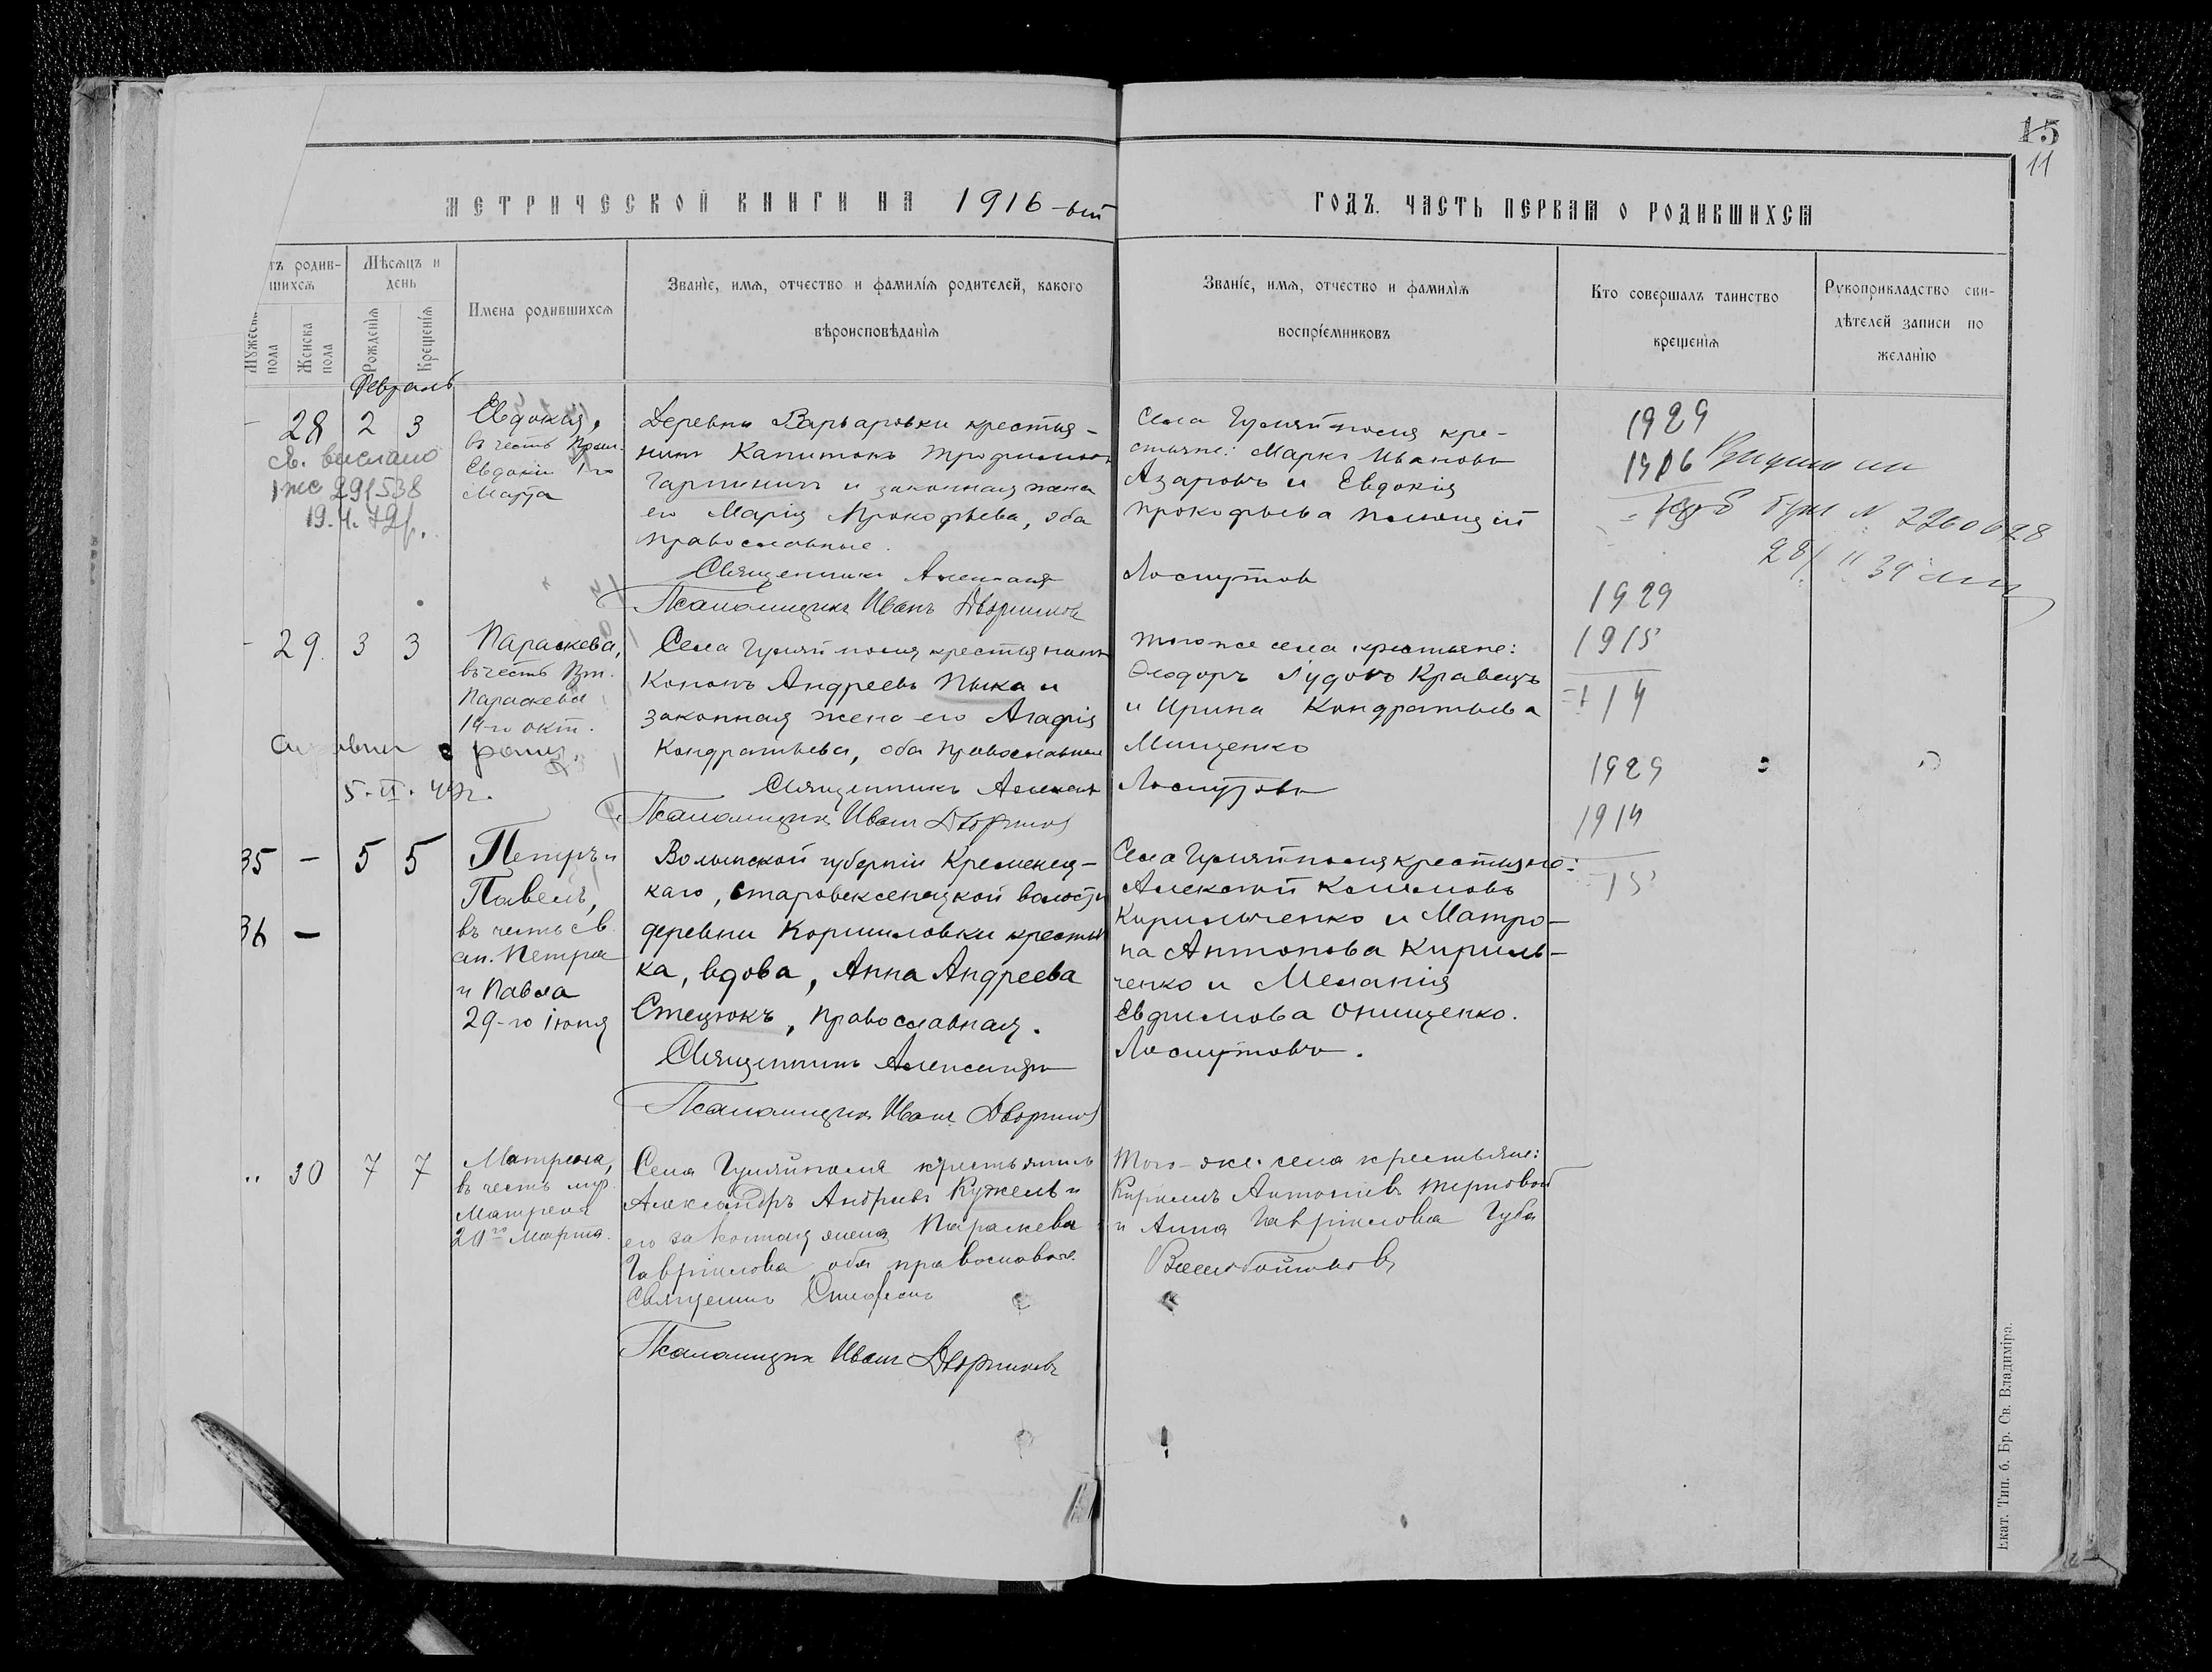 15
11
МЕТРИЧЕСКОЙ КНИГИ НА 1916-ый
ГОДЪ. ЧАСТЬ ПЕРВАЯ О РОДИВШИХСЯ
тъ родив-
шихся
Мужеска
пола
Женска
пола
Мѣсяцъ и
день
Рожденія
Крещенія
Имена родившихся
Званіе, имя, отчество и фамилія родителей, какого
вѣроисповѣданія
Званіе, имя, отчество и фамилія
воспріемниковъ
Кто совершалъ таинство
крещенія
Рукоприкладство сви-
дѣтелей записи по
желанію
Февраль
28 2 3
св. выслано
291538
Евдокія,
въ честь
Евдокіи 1-го
Марта
Деревни Варваровки крестья-
нинъ Капитонъ
и законная жена
его Марія Прокофьева, оба
православные.
Священникъ
Псаломщикъ Иванъ Дворниковъ
Села Гуляйполя кре-
стьяне: Маркъ Ивановъ
Азаровъ и Евдокія
Прокофьева
Лоскутовъ
1929
1906
N 2260628
- 29. 3 3
Параскева,
въ честь
Параскевы
14-го окт.
5. II. 49г.
Села Гуляйполя крестьянинъ
Кононъ Андреевъ Пыка и
законная жена его Агафія
Кондратьева, оба православные
Священникъ
Псаломщикъ Иванъ Дворниковъ
того же села крестьяне:
Ѳеодоръ Гудовъ Кравецъ
и Ирина Кондратьева
Мищенко
Лоскутовъ
1929
1915
14
1929
1914
15
35 — 5 5
36 —
Петръ и
Павелъ,
въ честь св.
ап. Петра
и Павла
29-го іюня
Волынской губерніи Кременец-
каго, Старовексенецкой волости
деревни Коршиловки крестьян
ка, вдова, Анна Андреева
Стецюкъ, православная.
Священникъ Александръ
Псаломщикъ Иванъ Дворниковъ
Села Гуляйполя крестьяне:
Алексій
Кирильченко и Матро-
на Антонова Кириль-
ченко и Меланія
Евфимова Онищенко.
Лоскутовъ.
" 30 7 7
Матрона,
въ честь мр.
Матроны
20го Марта.
Села Гуляйполя крестьянинъ
Александръ Андреевъ Кужель и
его законная жена Параскева
Гавріилова, оба православные.
Священникъ Стефанъ
Псаломщикъ Иванъ Дворниковъ
Того-же села крестьяне:
Кириллъ Антоніевъ Терновой
и Анна Гавріилова Губа
Екат. Тип. б. Бр. Св. Владиміра.